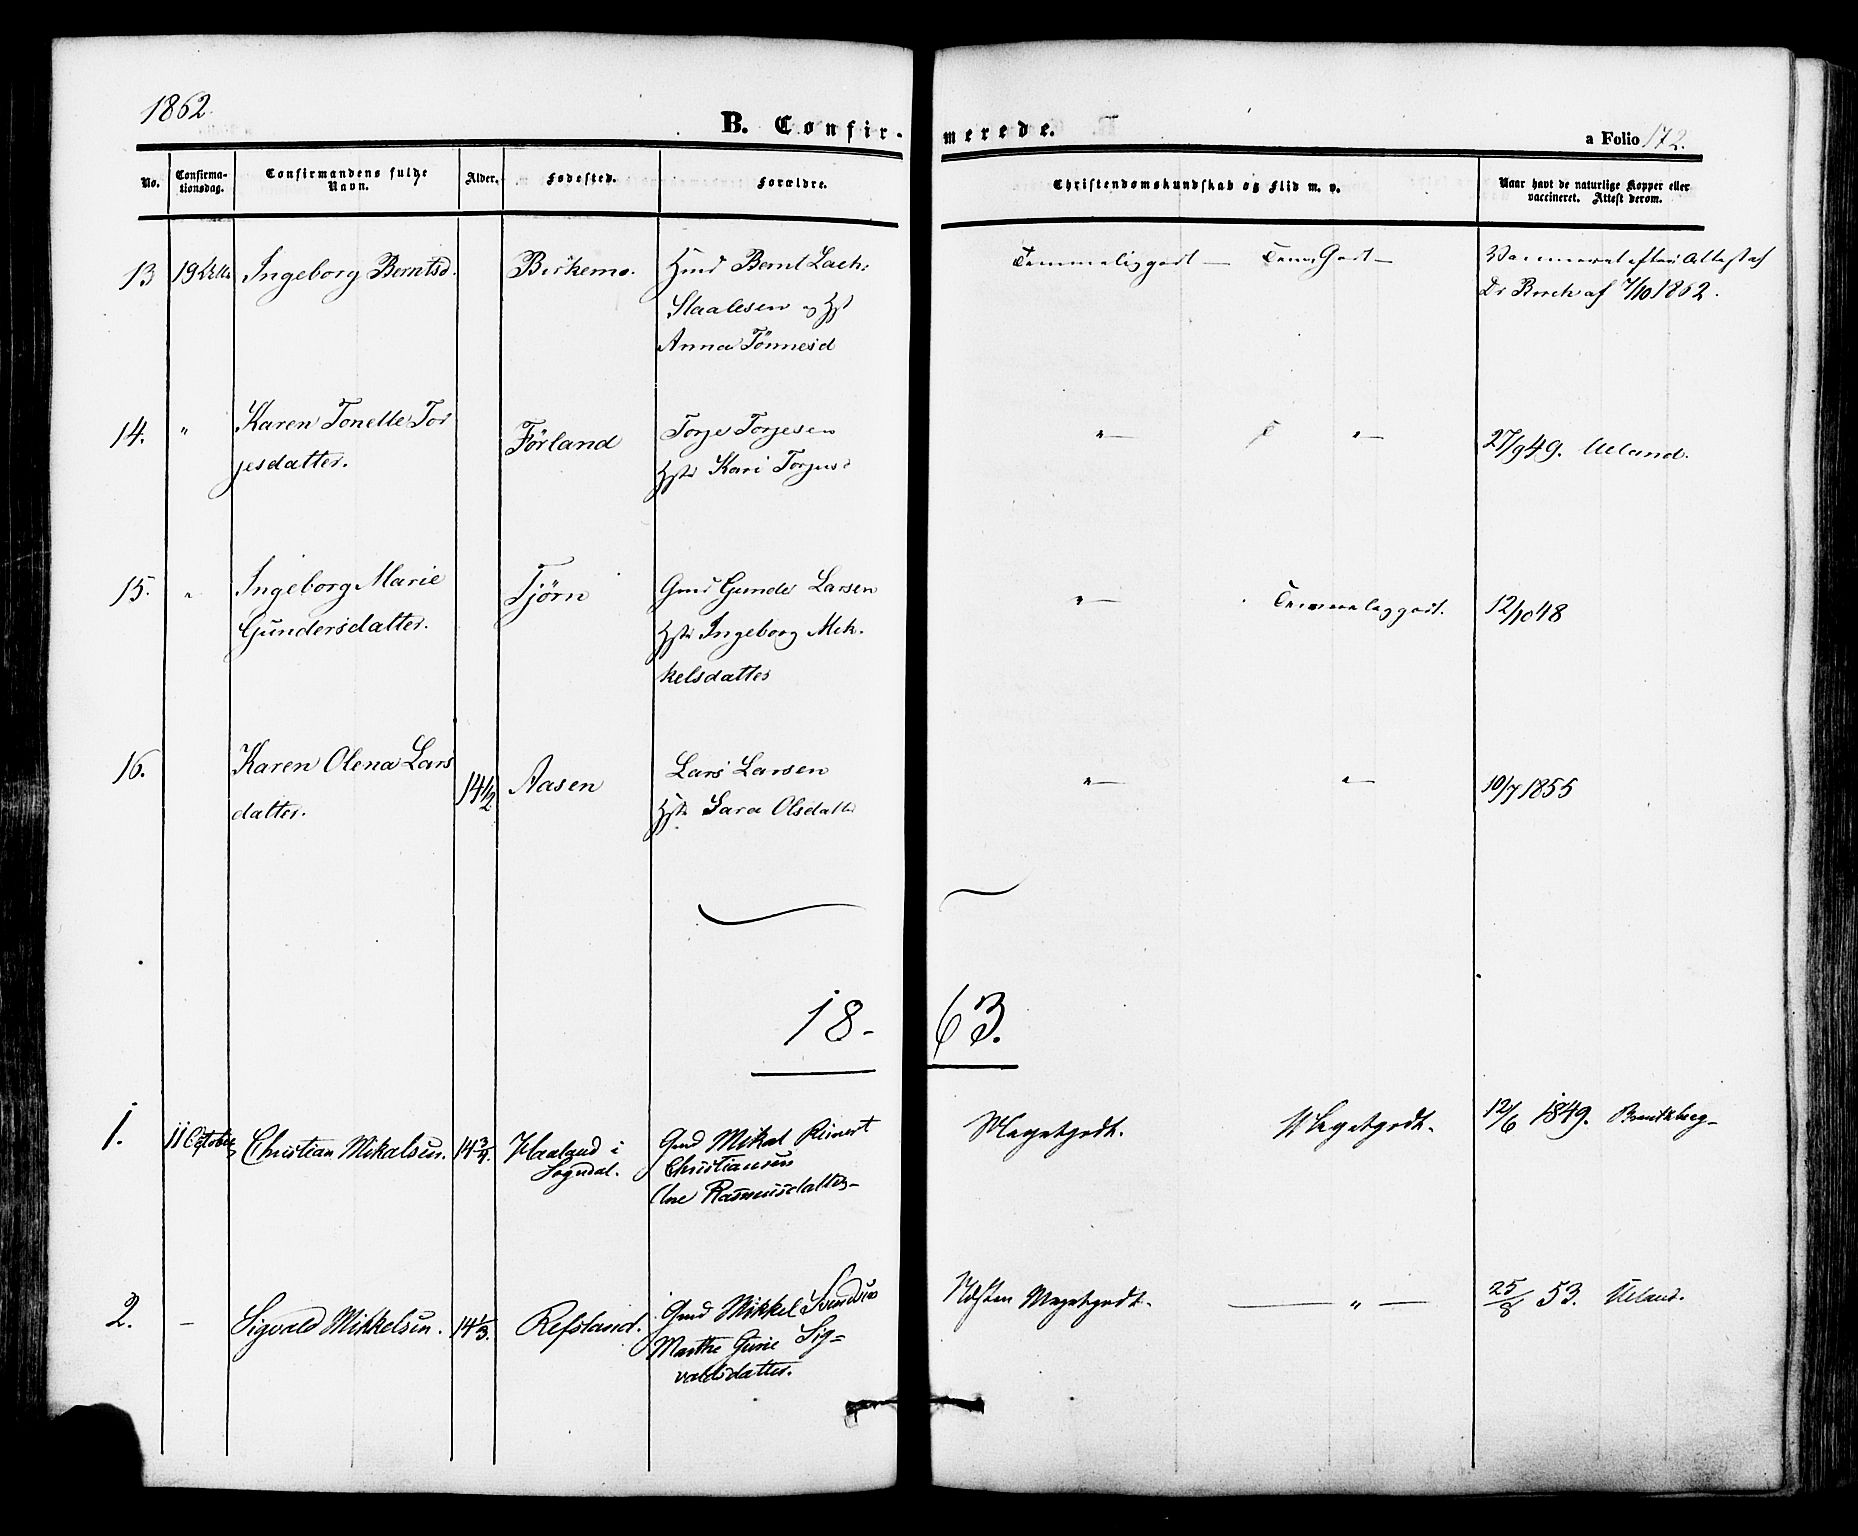 1862.
B. Confir-
merede.
a Folio 172.
No.
Confirma-
tionsdag.
Confirmandens fulde
Navn.
Alder.
Fødested.
Forældre.
Christendomskundskab og Flid m. v.
Naar havt de naturlige Kopper eller
vaccineret. Attest derom.
13 19 Ingeborg Berntsd. Birkemo. Gmd Bernt Zach:
Staalesen og Hst
Anna Tönnesd
Temmelig godt — Tem. Godt —
Vaccineret efter Attest af
Dr Borch af 7/10 1862.
14. " Karen Tonette Tor
jesdatter.
Förland
Torje Torjesen
Hstr Kari Torjus:
"— "—
27/9 49. Ueland.
15. " Ingeborg Marie
Gundersdatter.
Tjörn
Gmd Gunder Larsen
Hstr Ingeborg Mik-
kelsdatter
"— Temmelig godt.
12/10 48
16. Karen Olena Lars
datter.
14 1/2 Aasen
Lars Larsen
Hstr Sara Olsdatter
"— "—
10/7 1855
18- 63.
1. 11 October Christian Mikalsen. 14 3/4. Haaland i
Sogndal.
Gmd Mikal Reinert
Christiansen
Ane Rasmusdatter-
Megetgodt. Megetgodt.
12/6 1849.
2. — Sigvald Mikkelsen. 14 1/3. Refsland.
Gmd Mikkel Svendsen
Marthe Gurie Sig=
valdsdatter.
Næsten Megetgodt. — " —
25/8 53. Ueland.